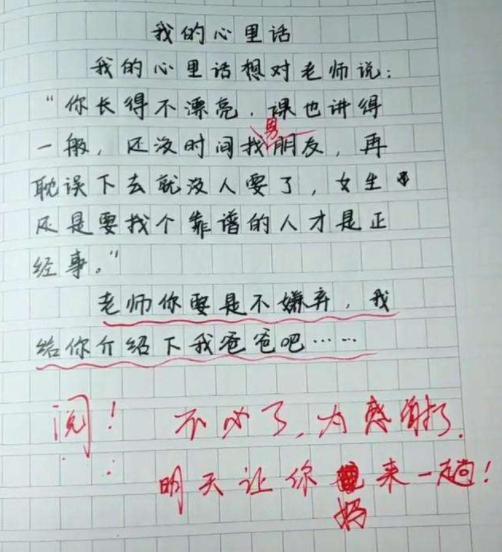 我的心里话
我的心里话想对老师说：
“你长得不漂亮，课也讲得
一般，还没时间找男朋友，再
耽误下去就没人要了，女生
还是要找个靠谱的人才是正
经事。”
老师你要是不嫌弃，我
给你介绍下我爸爸吧……
阅！ 不必了，为感情
明天让你妈来一趟！